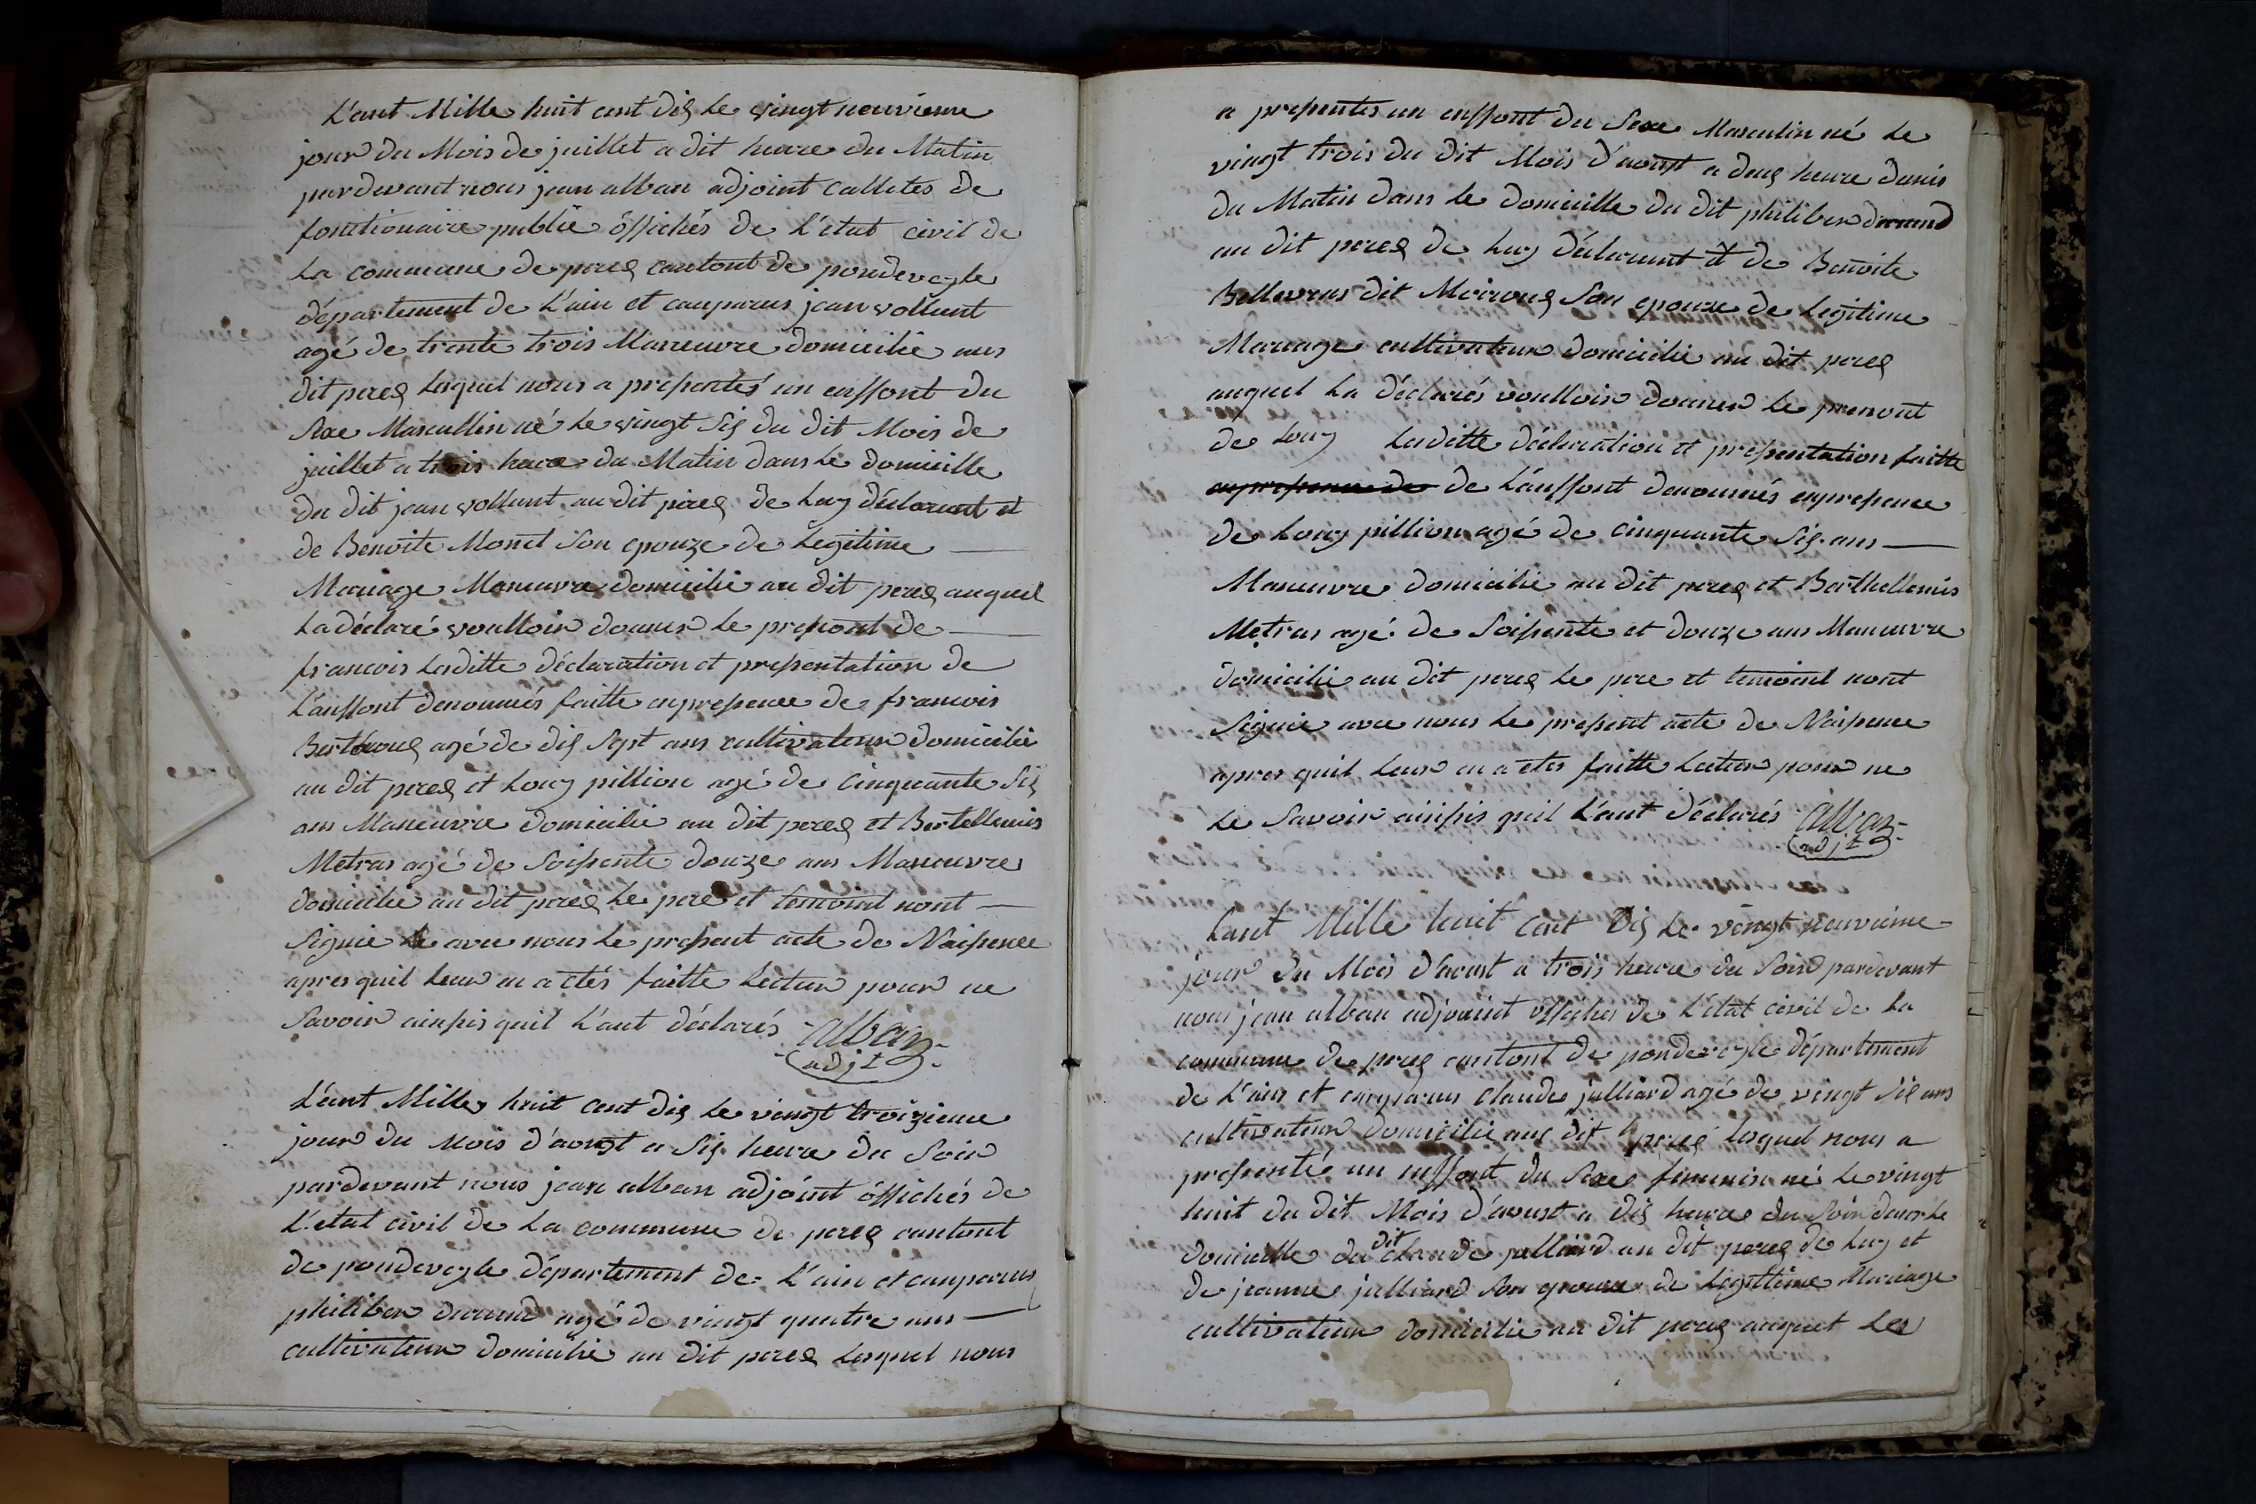 L'ant Mille huit cent dix le vingt neuvieme
jour du Mois de juillet a dit heure du Matin
pardevant nous jean alban adjoint
fonctionaire publié óffichés de L'état civil de
La commune de perex cantont de pondeveyle
département de L'ain et conparus jean vollant
agé de trente trois Maneuvre domicilié aus
dit perex Lequel nous a presentés un enffont du
Sexe Mascullin né Le vingt Six du dit Mois de
juillet a trois heure du Matin dans Le domicille
du dit jean vollant au dit perex de Luy déclarant et
de Benoite Monet Son epouze de Legitime
Mariage Maneuvre domicilié au dit perex auquel
La déclaré voulloir donner Le prenont de
francois Laditte déclaration et presentation de
L'anffont denommés faitte enpresence de francois
agé de dix Sept ans cultivateur domicilié
au dit perex et Louy pillion agé de Cinquante Six
ans Maneuvre domicilié au dit perex et Bertellemis
Metras agé de Soisente douze ans Maneuvre
domicilié au dit perex Le pere et temoint nont
Signié avec nous Le present acte de Naisence
apres quil Leur en a etés faitte Lecture pour ne
Savoir ainsis quil L'ant déclarés alban
adjt
L'ant Mille huit cent dix Le vingt troizieme
jour du Mois d'aoust a Six heure du Soir
pardevant nous jean alban adjoint óffichés de
L'etat civil de La commune de perex cantont
de pondeveyle département de L'ain et conparus
philiber durand agé de vingt quatre ans
cultivateur domicilié au dit perex Lequel nous
a presentés un enffont du Sexe Masculin né Le
vingt trois du dit Mois d'aoust a deux heure
du Matin dans Le domicille du dit philiber durand
au dit perex de Luy déclarant et de Benoite
Bellevras dit Moiroux Son epouze de Legitime
Mariage cultivateur domicilié au dit perex
auquel La déclarés voulloir donner Le prenont
de Louy Laditte déclaration et presentation faitte
enpresence de de L'anffont denommés enpresence
de Louy pillion agé de Cinquante Six ans
Maneuvre domicilié au dit perex et Barthellemis
Metras agé de Soisente et douze ans Maneuvre
domicilié au dit perex Le pere et temoint nont
Signié avec nous Le present acte de Naisence
apres quil Leur en a etés faitte Lecture pour ne
Le Savoir ainsis quil L'ant déclarés alban
adjt
Lant Mille huit cent dix Le vingt neuvieme
jour du Mois d'aoust a trois heure du Soir pardevant
nous jean alban adjouint óffichés de L'état civil de La
commune de perex cantont de pondeveyle département
de L'ain et conparus Claude julliard agé de vingt Six ans
cultivateur domicilié aux dit perex Lequel nous a
presenté un enffont du Sexe feminin né Le vingt
huit du dit Mois d'aoust a dix heure du Soir dans Le
domicille du dit Claude julliard au dit perex de Luy et
de jeanne julliard Son epouze de Legitime Mariage
cultivateur domicilié au dit perex auquel Les